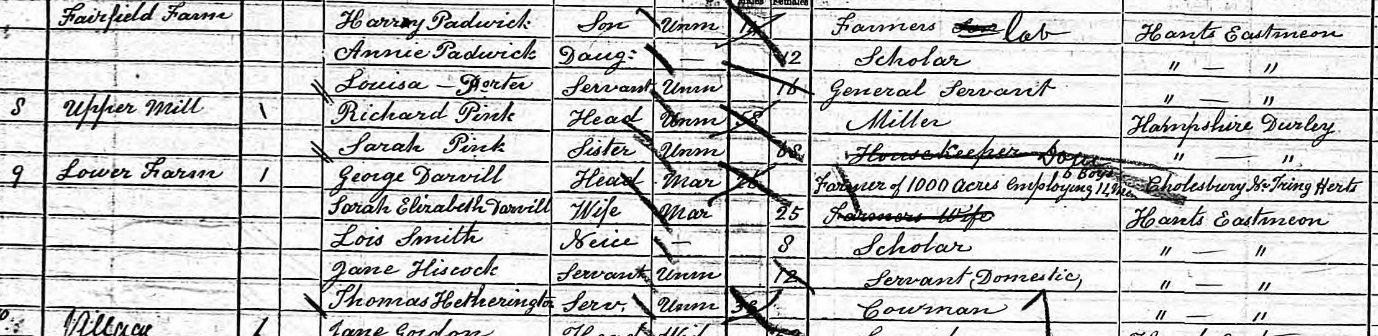 Females
Fairfield Farm Harry Padwick Son Unm Farmers Son lab Hants Eastmeon
Annie Padwick Daug: — 12 Scholar " — "
Louisa — Porter Servant Unm 16 General Servant " — "
8 Upper Mill 1 Richard Pink Head Unm 58 Miller Hampshire Durley
Sarah Pink Sister Unm 68 Housekeeper Dom " — "
9 Lower Farm 1 George Darvill Head Mar 26 Farmer of 1000 Acres Employing 12 Men 6 Boys Cholesbury Nr Tring Herts
Sarah Elizabeth Darvill Wife Mar 25 Farmers Wife Hants Eastmeon
Lois Smith Neice — 8 Scholar " — "
Jane Hiscock Servant Unm 12 Servant, Domestic, " — "
Thomas Hetherington Serv. Unm Cowman " — "
Village 1 Jane Gordon Head Wid